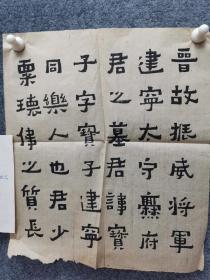 晉故振威將軍
建寧太守爨府
君之墓君諱寶
子字寶子建寧
同樂人也君少
稟瓌偉之質長